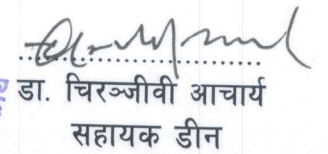 डा. चिरञ्जीवी आचार्य
सहायक डीन